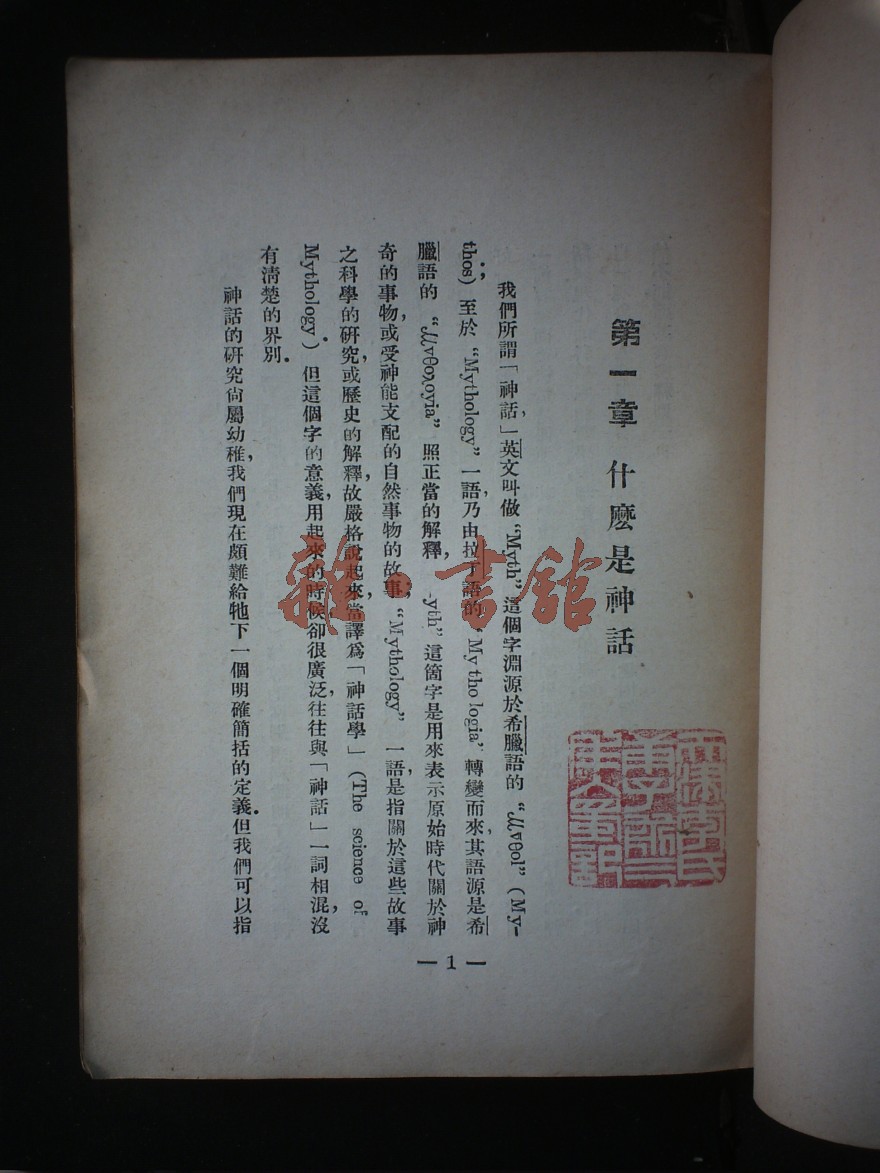 第一章 什麽是神話
我們所謂「神話，」英文叫做“Myth”這個字淵源於希臘語的“Μνθοl”（My-
thos)；至於“Mythology”一語，乃由拉丁語的“My tho logia”轉變而來，其語源是希
臘語的“Μνθολογια”照正當的解釋，-yth”這箇字是用來表示原始時代關於神
奇的事物，或受神能支配的自然事物的故事；“Mythology”一語，是指關於這些故事
之科學的研究，或歷史的解釋，故嚴格說起來，當譯爲「神話學」（The science of
Mythology）．但這個字的意義，用起來的時候卻很廣泛，往往與「神話」一詞相混，沒
有淸楚的界別．
神話的研究尙屬幼稚，我們現在頗難給牠下一個明確簡括的定義．但我們可以指
— 1 —
雜·書館